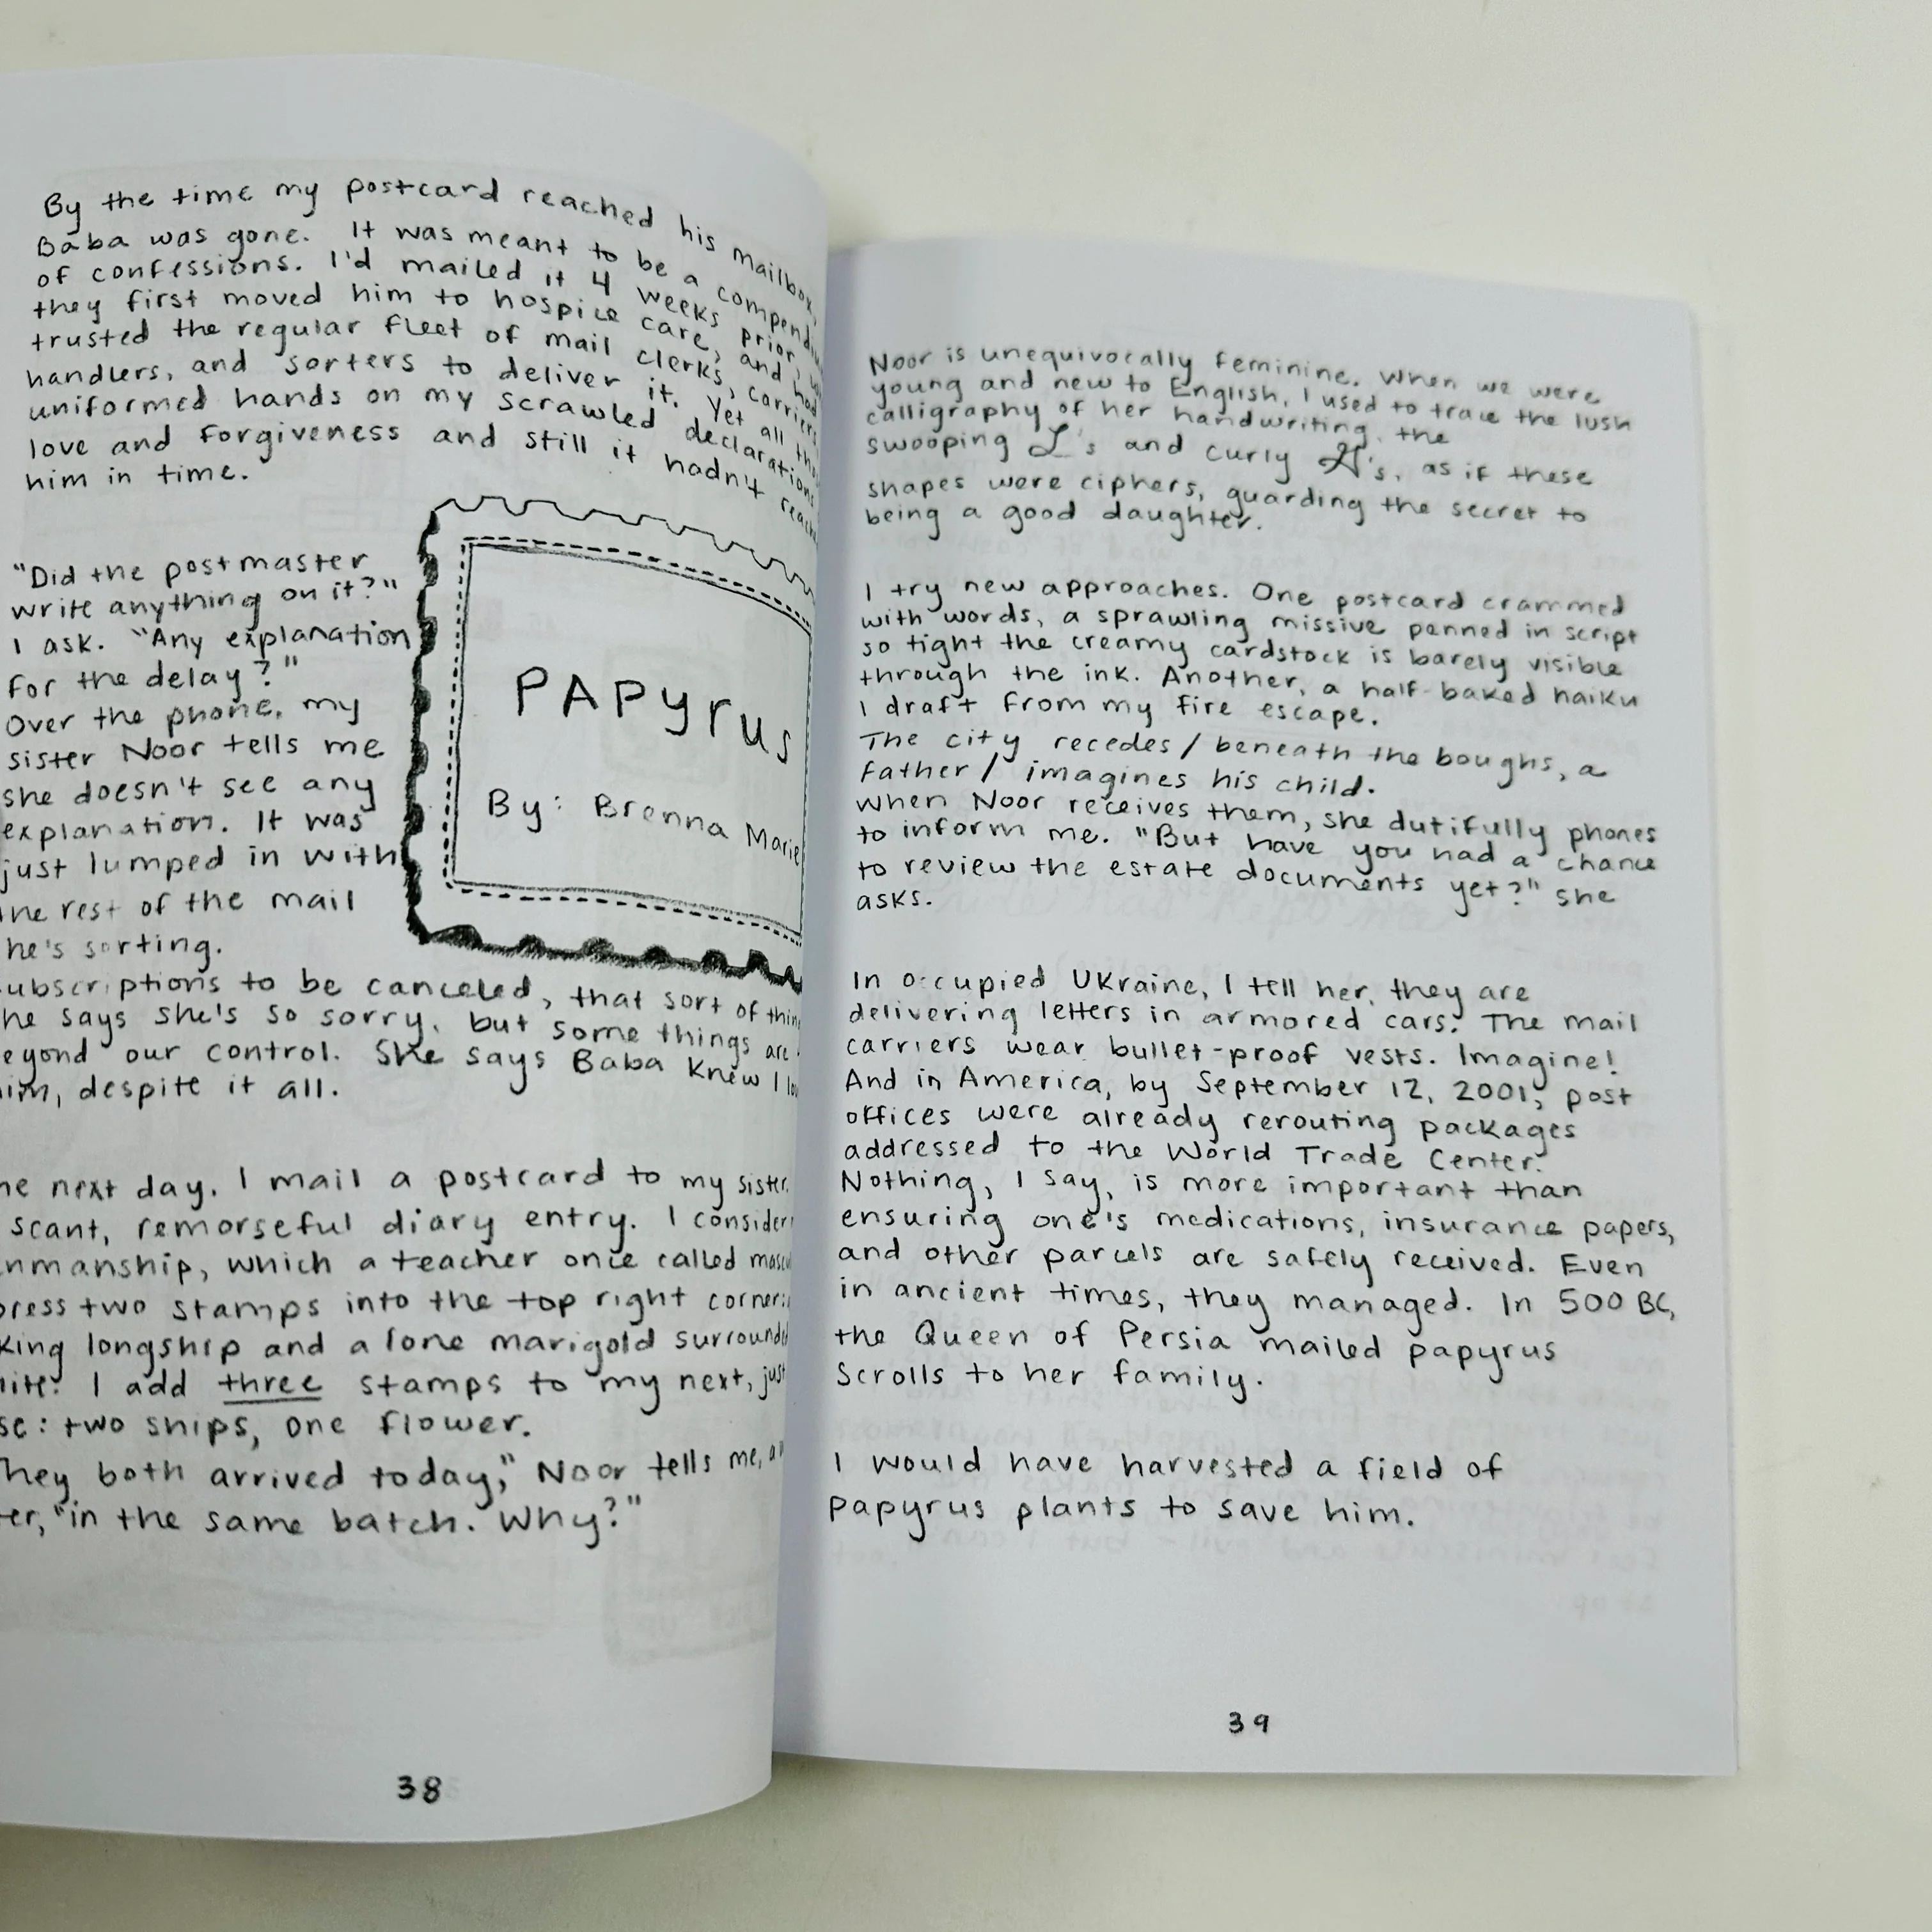 By the time my postcard reached his mailbox,
Baba was gone. It was meant to be a
of confessions. I'd mailed it 4 weeks prior,
they first moved him to hospice care, and had
trusted the regular fleet of mail clerks, carriers
handlers, and sorters to deliver it. Yet all
uniformed hands on my scrawled declarations
love and forgiveness and still it hadn't
him in time.
"Did the postmaster
write anything on it?"
I ask. "Any explanation
for the delay?"
Over the phone, my
sister Noor tells me
she doesn't see any
explanation. It was
just lumped in with
the rest of the mail
he's sorting.
PAPyrus
By: Brenna Marie
ubscriptions to be canceled, that sort of
he says she's so sorry, but some things are
eyond our control. She says Baba knew I
him, despite it all.
next day, I mail a postcard to my sister.
scant, remorseful diary entry. I consider
nmanship, which a teacher once called
press two stamps into the top right corner:
king longship and a lone marigold surrounded
I add three stamps to my next, just
: two ships, one flower.
hey both arrived today," Noor tells me,
er, "in the same batch. Why?"
38
Noor is unequivocally feminine. When we were
young and new to English, I used to trace the lush
calligraphy of her handwriting, the
swooping L's and curly H's, as if these
shapes were ciphers, guarding the secret to
being a good daughter.
I try new approaches. One postcard crammed
with words, a sprawling missive penned in script
so tight the creamy cardstock is barely visible
through the ink. Another, a half-baked haiku
I draft from my fire escape.
The city recedes / beneath the boughs, a
father / imagines his child.
When Noor receives them, she dutifully phones
to inform me. "But have you had a chance
to review the estate documents yet?" she
asks.
In occupied Ukraine, I tell her, they are
delivering letters in armored cars. The mail
carriers wear bullet-proof vests. Imagine!
And in America, by September 12, 2001, post
offices were already rerouting packages
addressed to the World Trade Center.
Nothing, I say, is more important than
ensuring one's medications, insurance papers,
and other parcels are safely received. Even
in ancient times, they managed. In 500 BC,
the Queen of Persia mailed papyrus
scrolls to her family.
I would have harvested a field of
papyrus plants to save him.
39